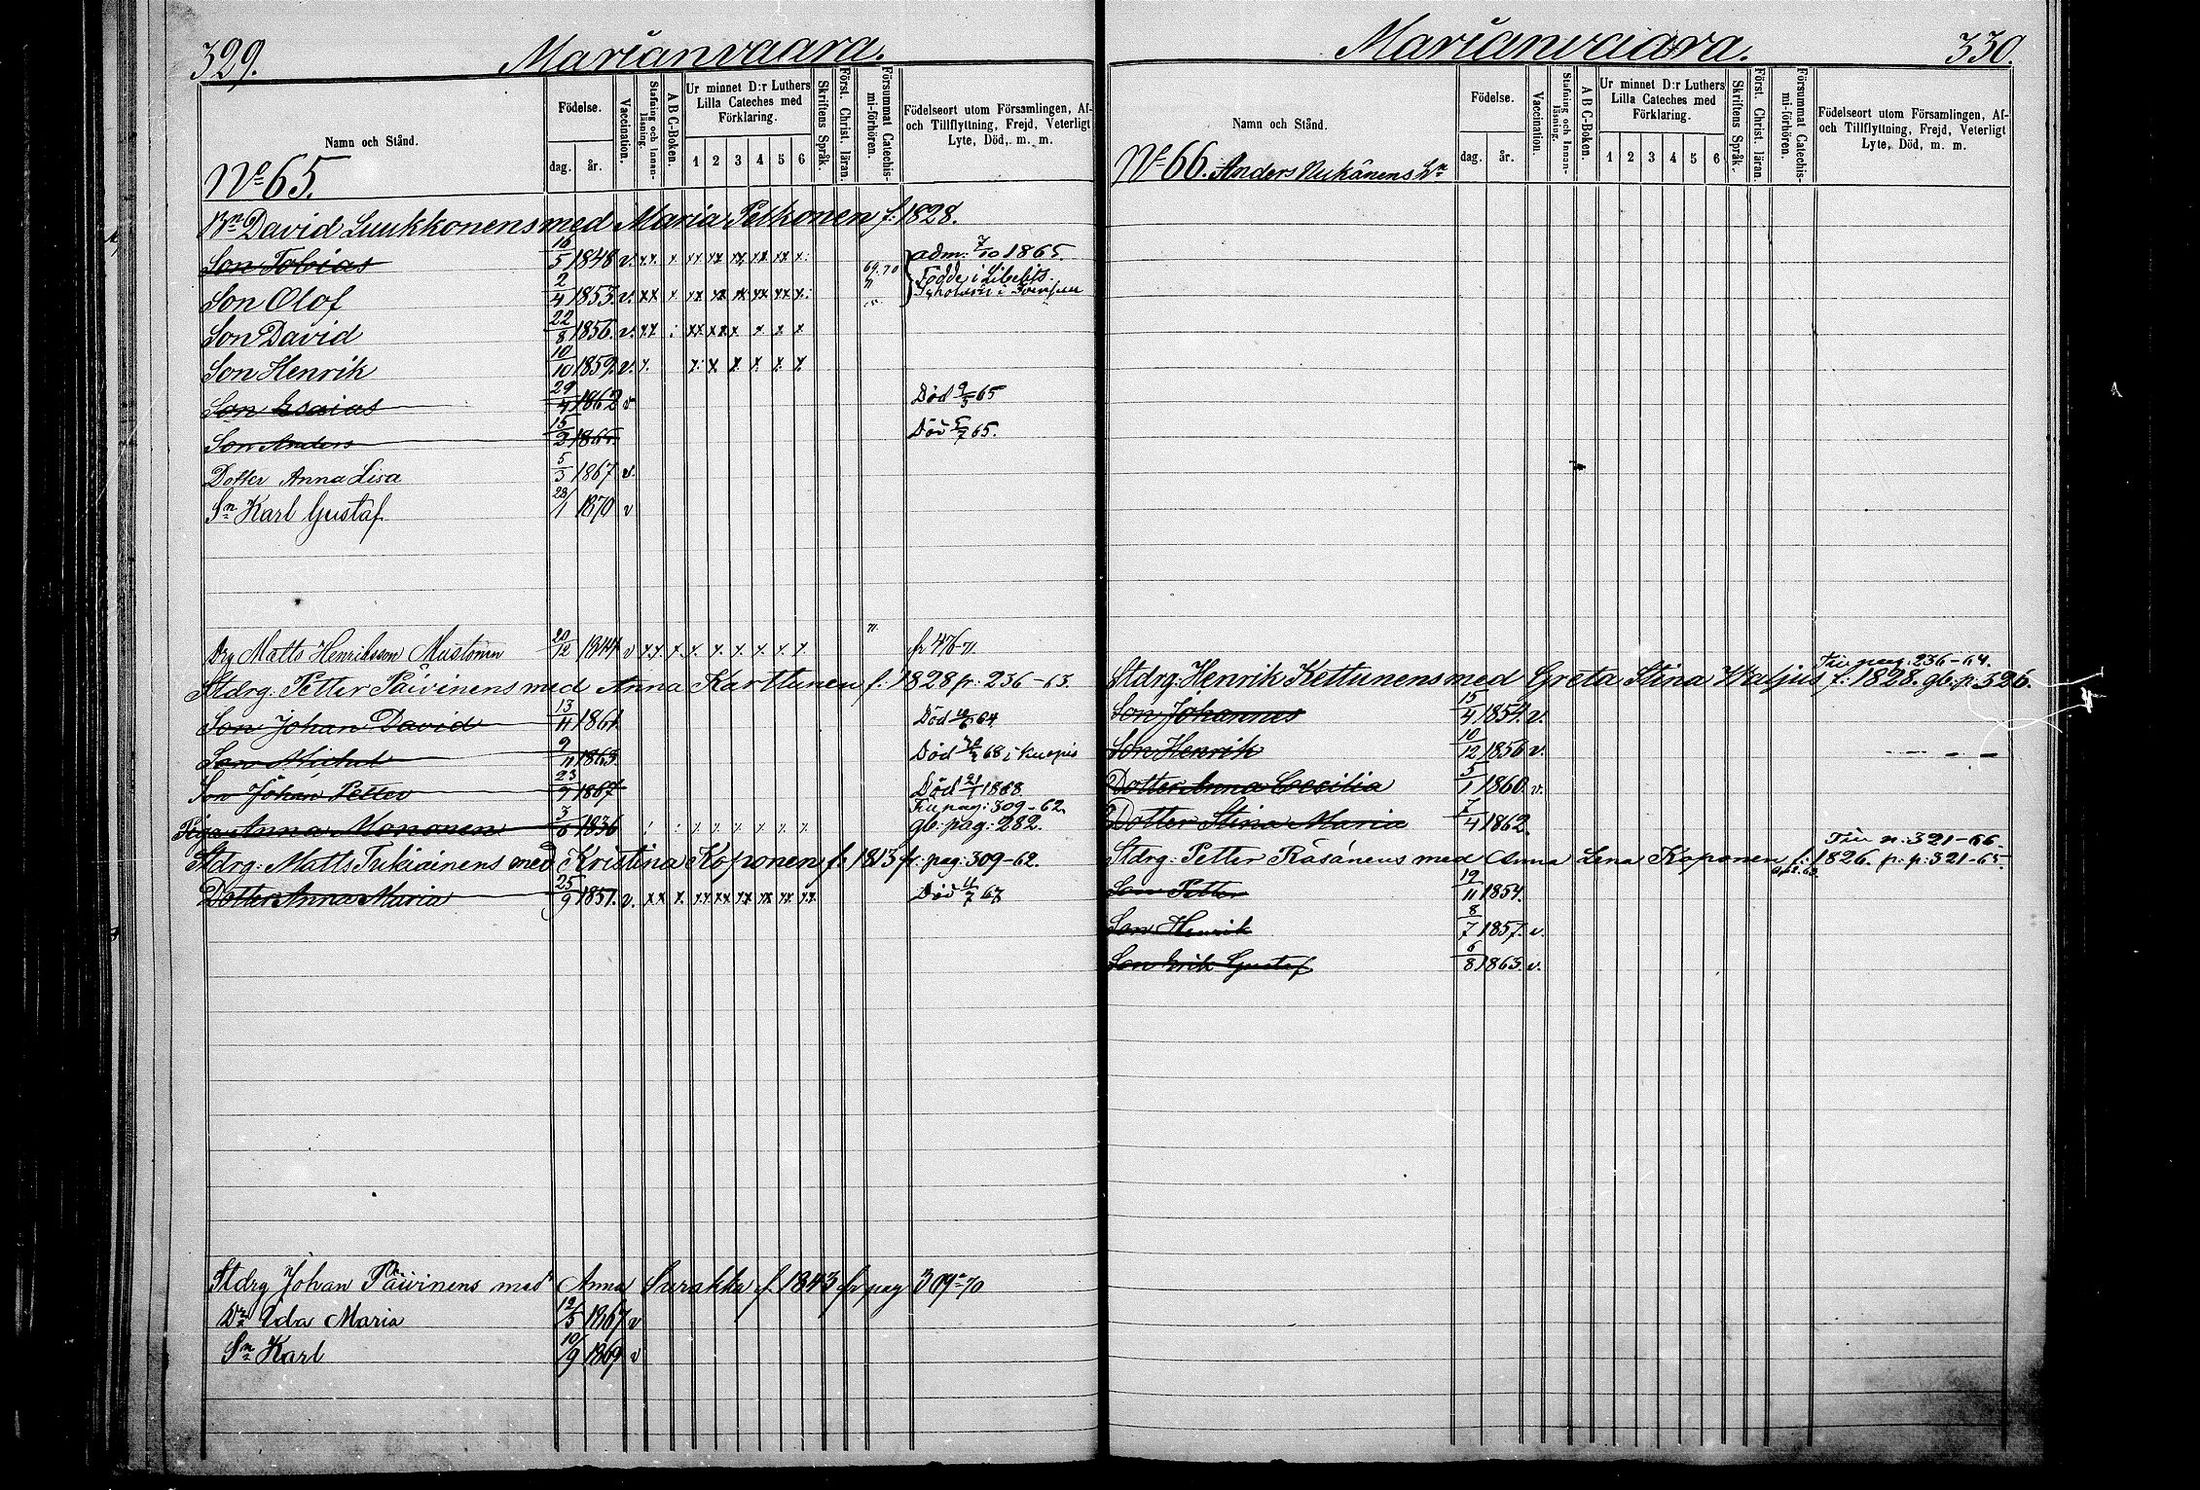 329.
Marianvaara.
Namn och Stånd.
Födelse.
dag.
år.
Vaccination.
Stafning och Innan-läsning.
A B C-Boken.
Ur minnet D:r Luthers Lilla Cateches med Förklaring.
1 2 3 4 5 6
Skriftens Språk.
Först. Christ. läran.
Försummat Catechis-mi-förhören.
Födelseort utom Församlingen, Af- och Tillflyttning, Frejd, Veterligt Lyte, Död, m. m.
No 65.
Bn David Luukkonens med Maria Pelkonen f. 1828.
Son Tobias 16/5 1848 v. xx x xx xx xx xx xx x. adm. 7/10 1865.
Son Olof 2/4 1853 v. xx x xx xx xx xx xx x. 69.70 71 Födde i Libelits
Son David 22/8 1856. v. xx : xx xx x x x x
Son Henrik 10/10 1859 v. x. x. x x x. x. x
Son Esaias 29/4 1862 v Död 9/3 65
Son Anders 15/2 1865. Död 5/7 65.
Dotter Anna Lisa 5/3 1867 v.
Sn Karl Gustaf 28/1 1870 v
Drg Matts Henriksson Mustonen 20/12 1844 v xx. x. x. x. x. x. x. x 71. fr 476-71
Stdrg: Petter Päivinens med Anna Karttunen f. 1828 fr. 236-63.
Son Johan David 13/11 1861 Död 64
Son Michel 9/11 1863 Död 68 i Kuopio
Son Johan Petter 23/7 1867 Död 21/1 1868
Piga Anna Mononen 3/6 1836 : : x. x x x x x. Till pag: 309-62. gb. pag: 282.
Stdrg: Matts Tukiainens med Kristina Koponen f. 1813 fr. pag: 309-62.
Dotter Anna Maria 25/9 1851. v. xx x. xx xx xx xx xx xx. Död 11/7 67
Stdrg Johan Päivinens med Anna Surakka f. 1843 fr pag 309-70
Dr Ida Maria 12/5 1867 v
Sn Karl 10/9 1869 v
Marianvaara.
330.
Namn och Stånd.
Födelse.
dag.
år.
Vaccination.
Stafning och Innan-läsning.
A B C-Boken.
Ur minnet D:r Luthers Lilla Cateches med Förklaring.
1 2 3 4 5 6
Skriftens Språk.
Först. Christ. läran.
Försummat Catechis-mi-förhören.
Födelseort utom Församlingen, Af- och Tillflyttning, Frejd, Veterligt Lyte, Död, m. m.
No 66. Anders
Till pag: 236-64.
Stdrg: Henrik Kettunens med Greta Stina Waljus f. 1828. gb. p: 326.
Son Johannes 15/4 1854. v.
Son Henrik 10/12 1856 v.
Dotter Anna Cecilia 5/1 1860. v.
Dotter Stina Maria 7/4 1862.
Till p: 321-66.
Stdrg: Petter Räsänens med Anna Lena Koponen f. 1826. fr. p: 321-65.
Son Petter 19/11 1854.
Son Henrik 8/7 1857. v.
Son Erik Gustaf 6/8 1863. v.